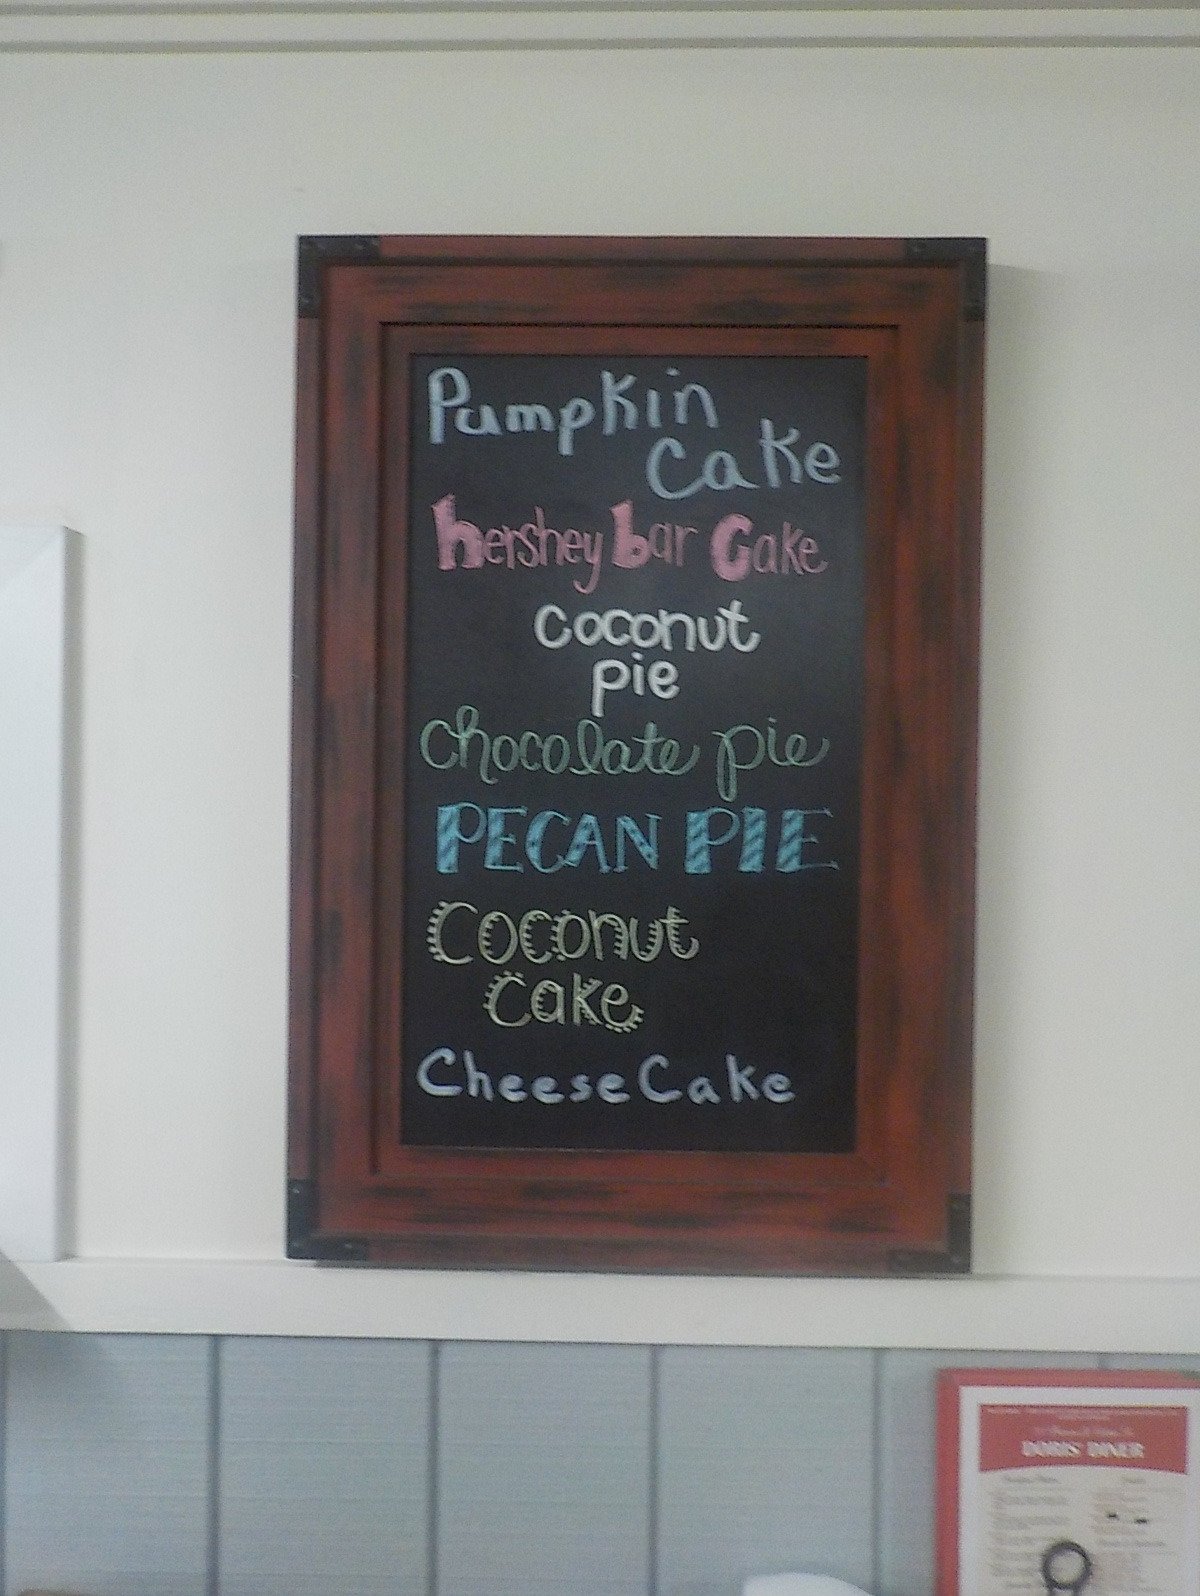 Pumpkin
Cake
hershey bar Cake
coconut
pie
chocolate pie
PECAN PIE
Coconut
Cake
Cheese Cake
DORIS' DINER